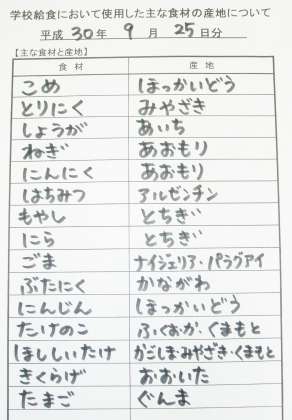 学校給食において使用した主な食材の産地について
平成 30 年 9 月 25 日分
【主な食材と産地】
食材 産地
こめ ほっかいどう
とりにく みやざき
しょうが あいち
ねぎ あおもり
にんにく あおもり
はちみつ アルゼンチン
もやし とちぎ
にら とちぎ
ごま ナイジェリア・パラグアイ
ぶたにく かながわ
にんじん ほっかいどう
たけのこ ふくおか、くまもと
ほししいたけ かごしま・みやざき・くまもと
きくらげ おおいた
たまご ぐんま